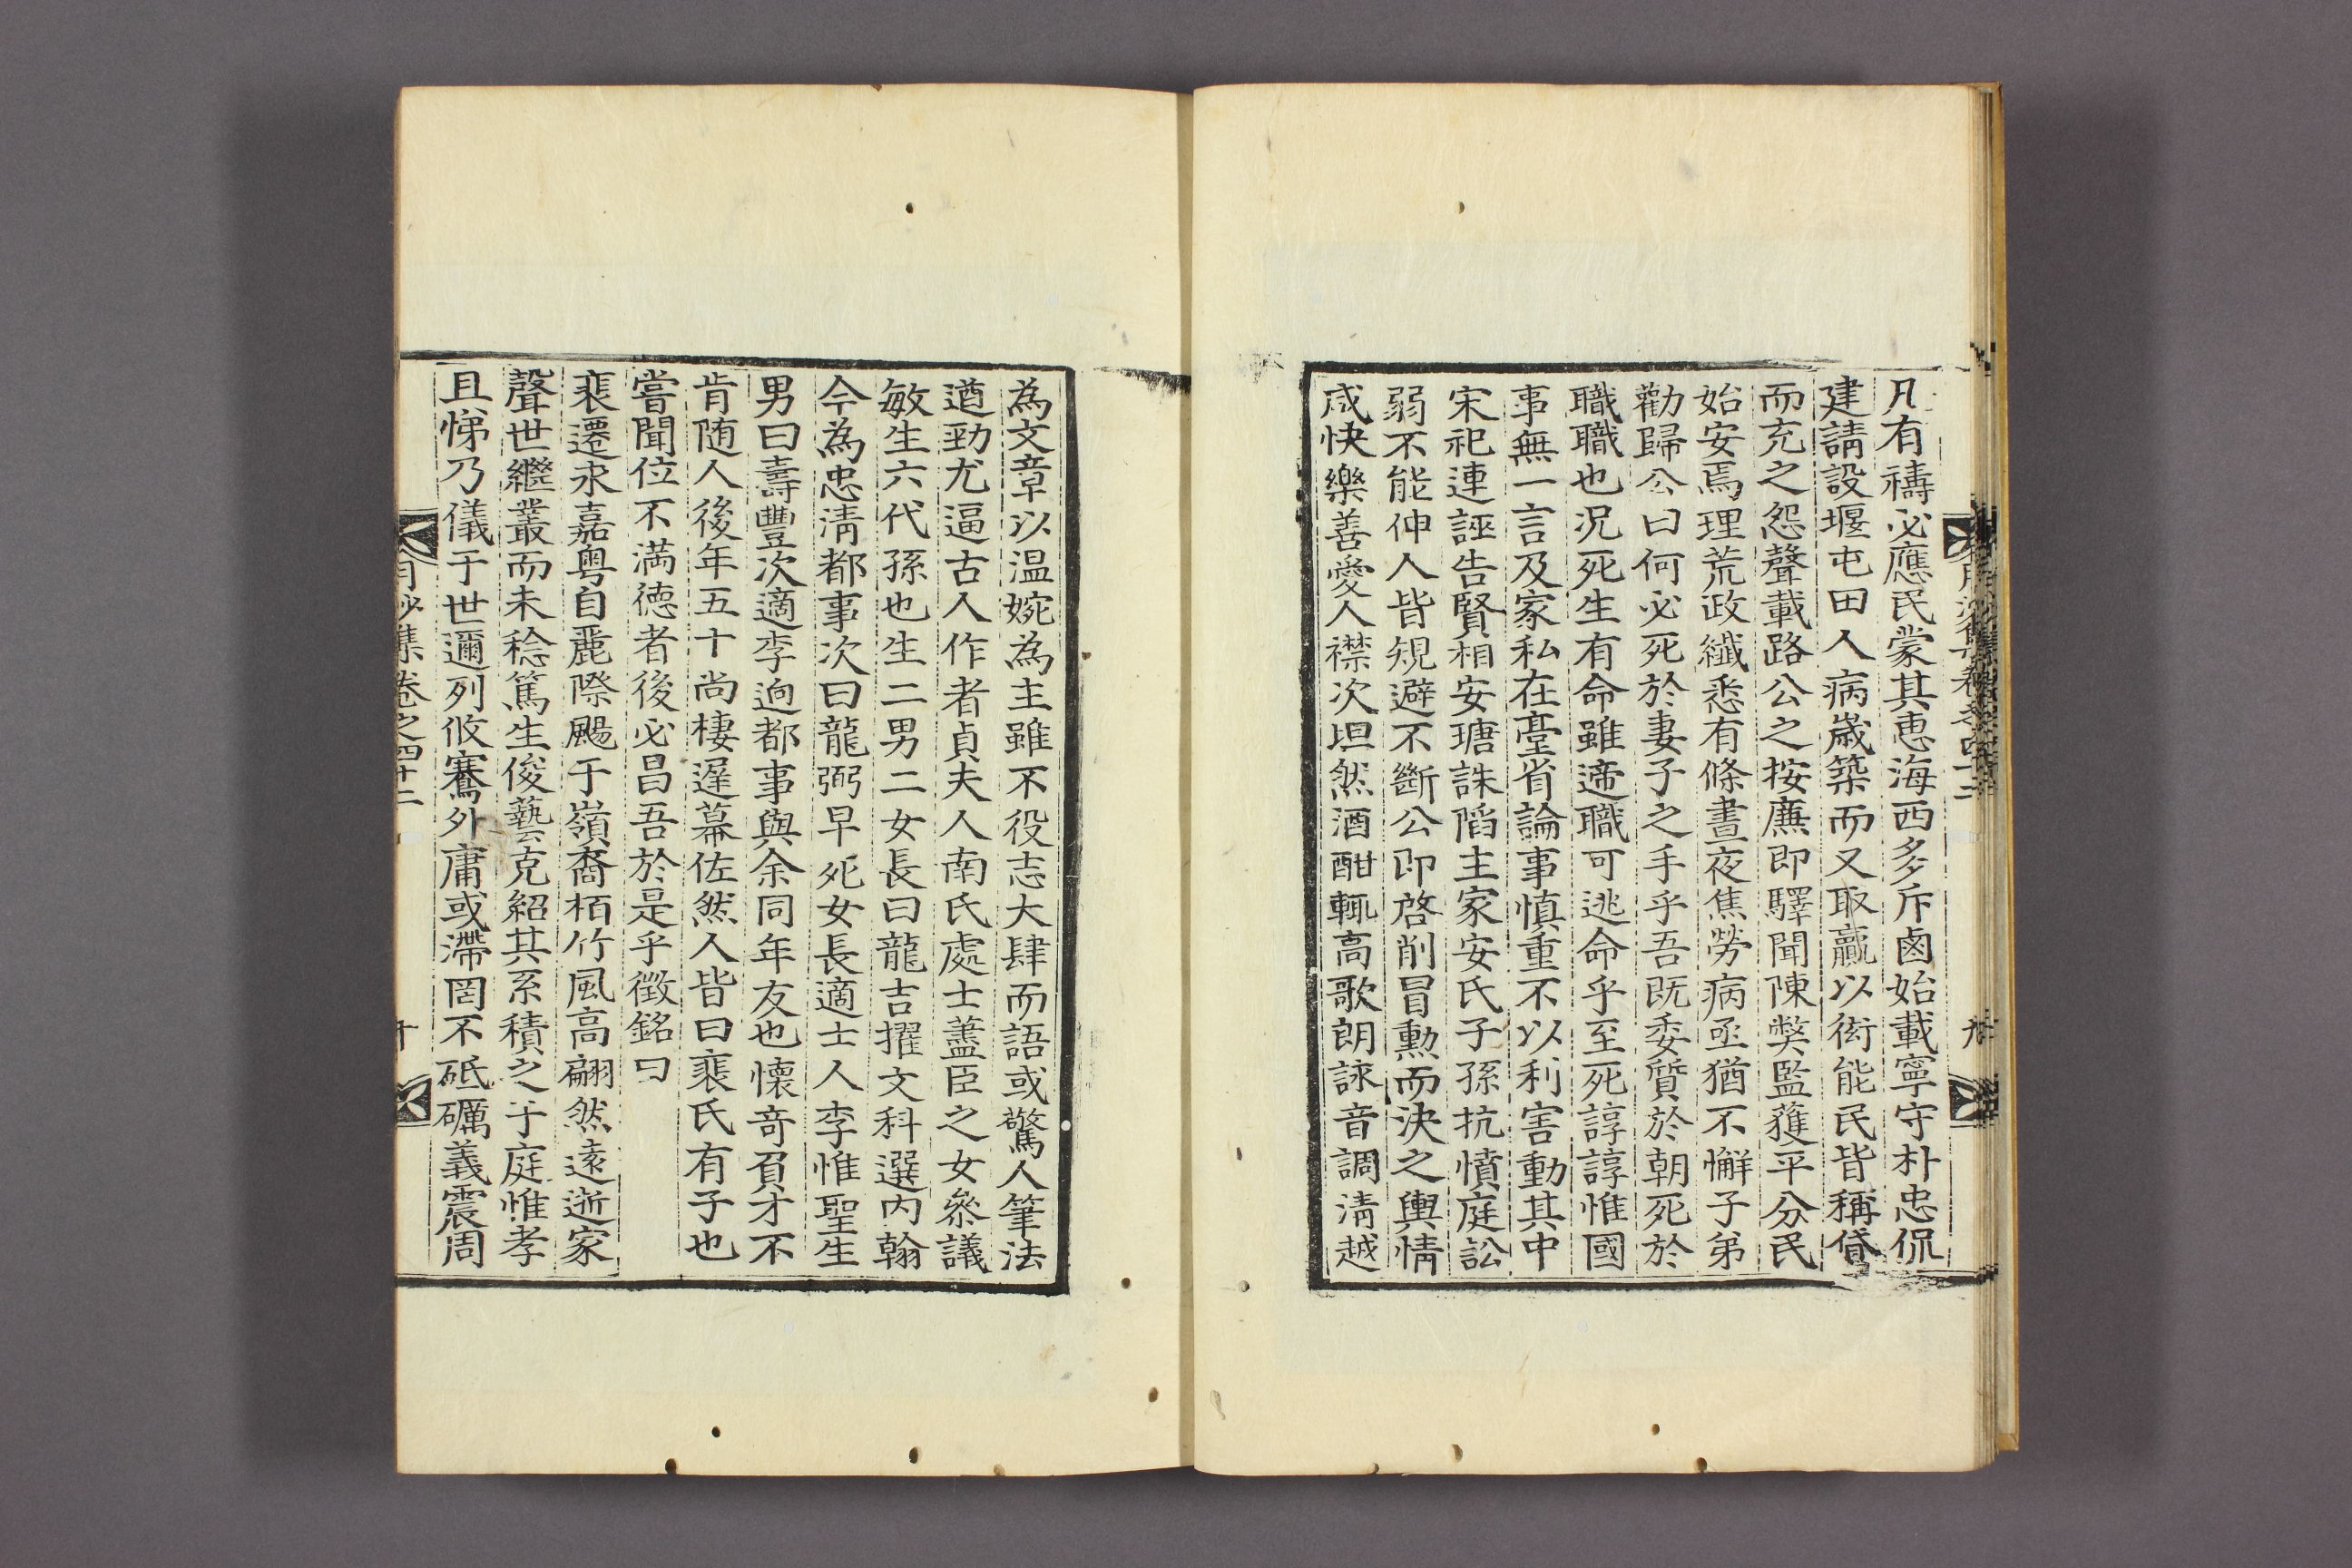 月沙集卷之四十二
九
凡有禱必應民蒙其惠海西多斥鹵始載寧守朴忠侃
建請設堰屯田人病歲築而又取贏以衒能民皆稱貸
而充之怨聲載路公之按廉即驛聞陳獘監蒦平分民
始安焉理荒政纖悉有條晝夜焦勞病亟猶不懈子弟
勸歸公曰何必死於妻子之手乎吾既委質於朝死於
職職也况死生有命雖遞職可逃命乎至死諄諄惟國
事無一言及家私在臺省論事慎重不以利害動其中
宋祀連誣告賢相安瑭誅謟主家安氏子孫抗憤庭訟
弱不能伸人皆規避不斷公即啓削冒勳而決之輿情
咸快樂善愛人襟次坦然酒酣輒高歌朗詠音調清越
為文章以温婉為主雖不役志大肆而語或驚人筆法
遒勁尤逼古人作者貞夫人南氏處士藎臣之女叅議
敏生六代孫也生二男二女長曰龍吉擢文科選内翰
今為忠清都事次曰龍弼早死女長適士人李惟聖生
男曰壽豐次適李逈都事與余同年友也懷奇負才不
肯随人後年五十尚棲遲幕佐然人皆曰裴氏有子也
嘗聞位不満德者後必昌吾於是乎徵銘曰
裴遷永嘉粤自麗際颺于嶺裔栢竹風高翩然遠逝家
聲世繼叢而未稔篤生俊藝克紹其系積之于庭惟孝
且悌乃儀于世邇列攸騫外庸或滯罔不砥礪義震周
月沙集卷之四十二
十